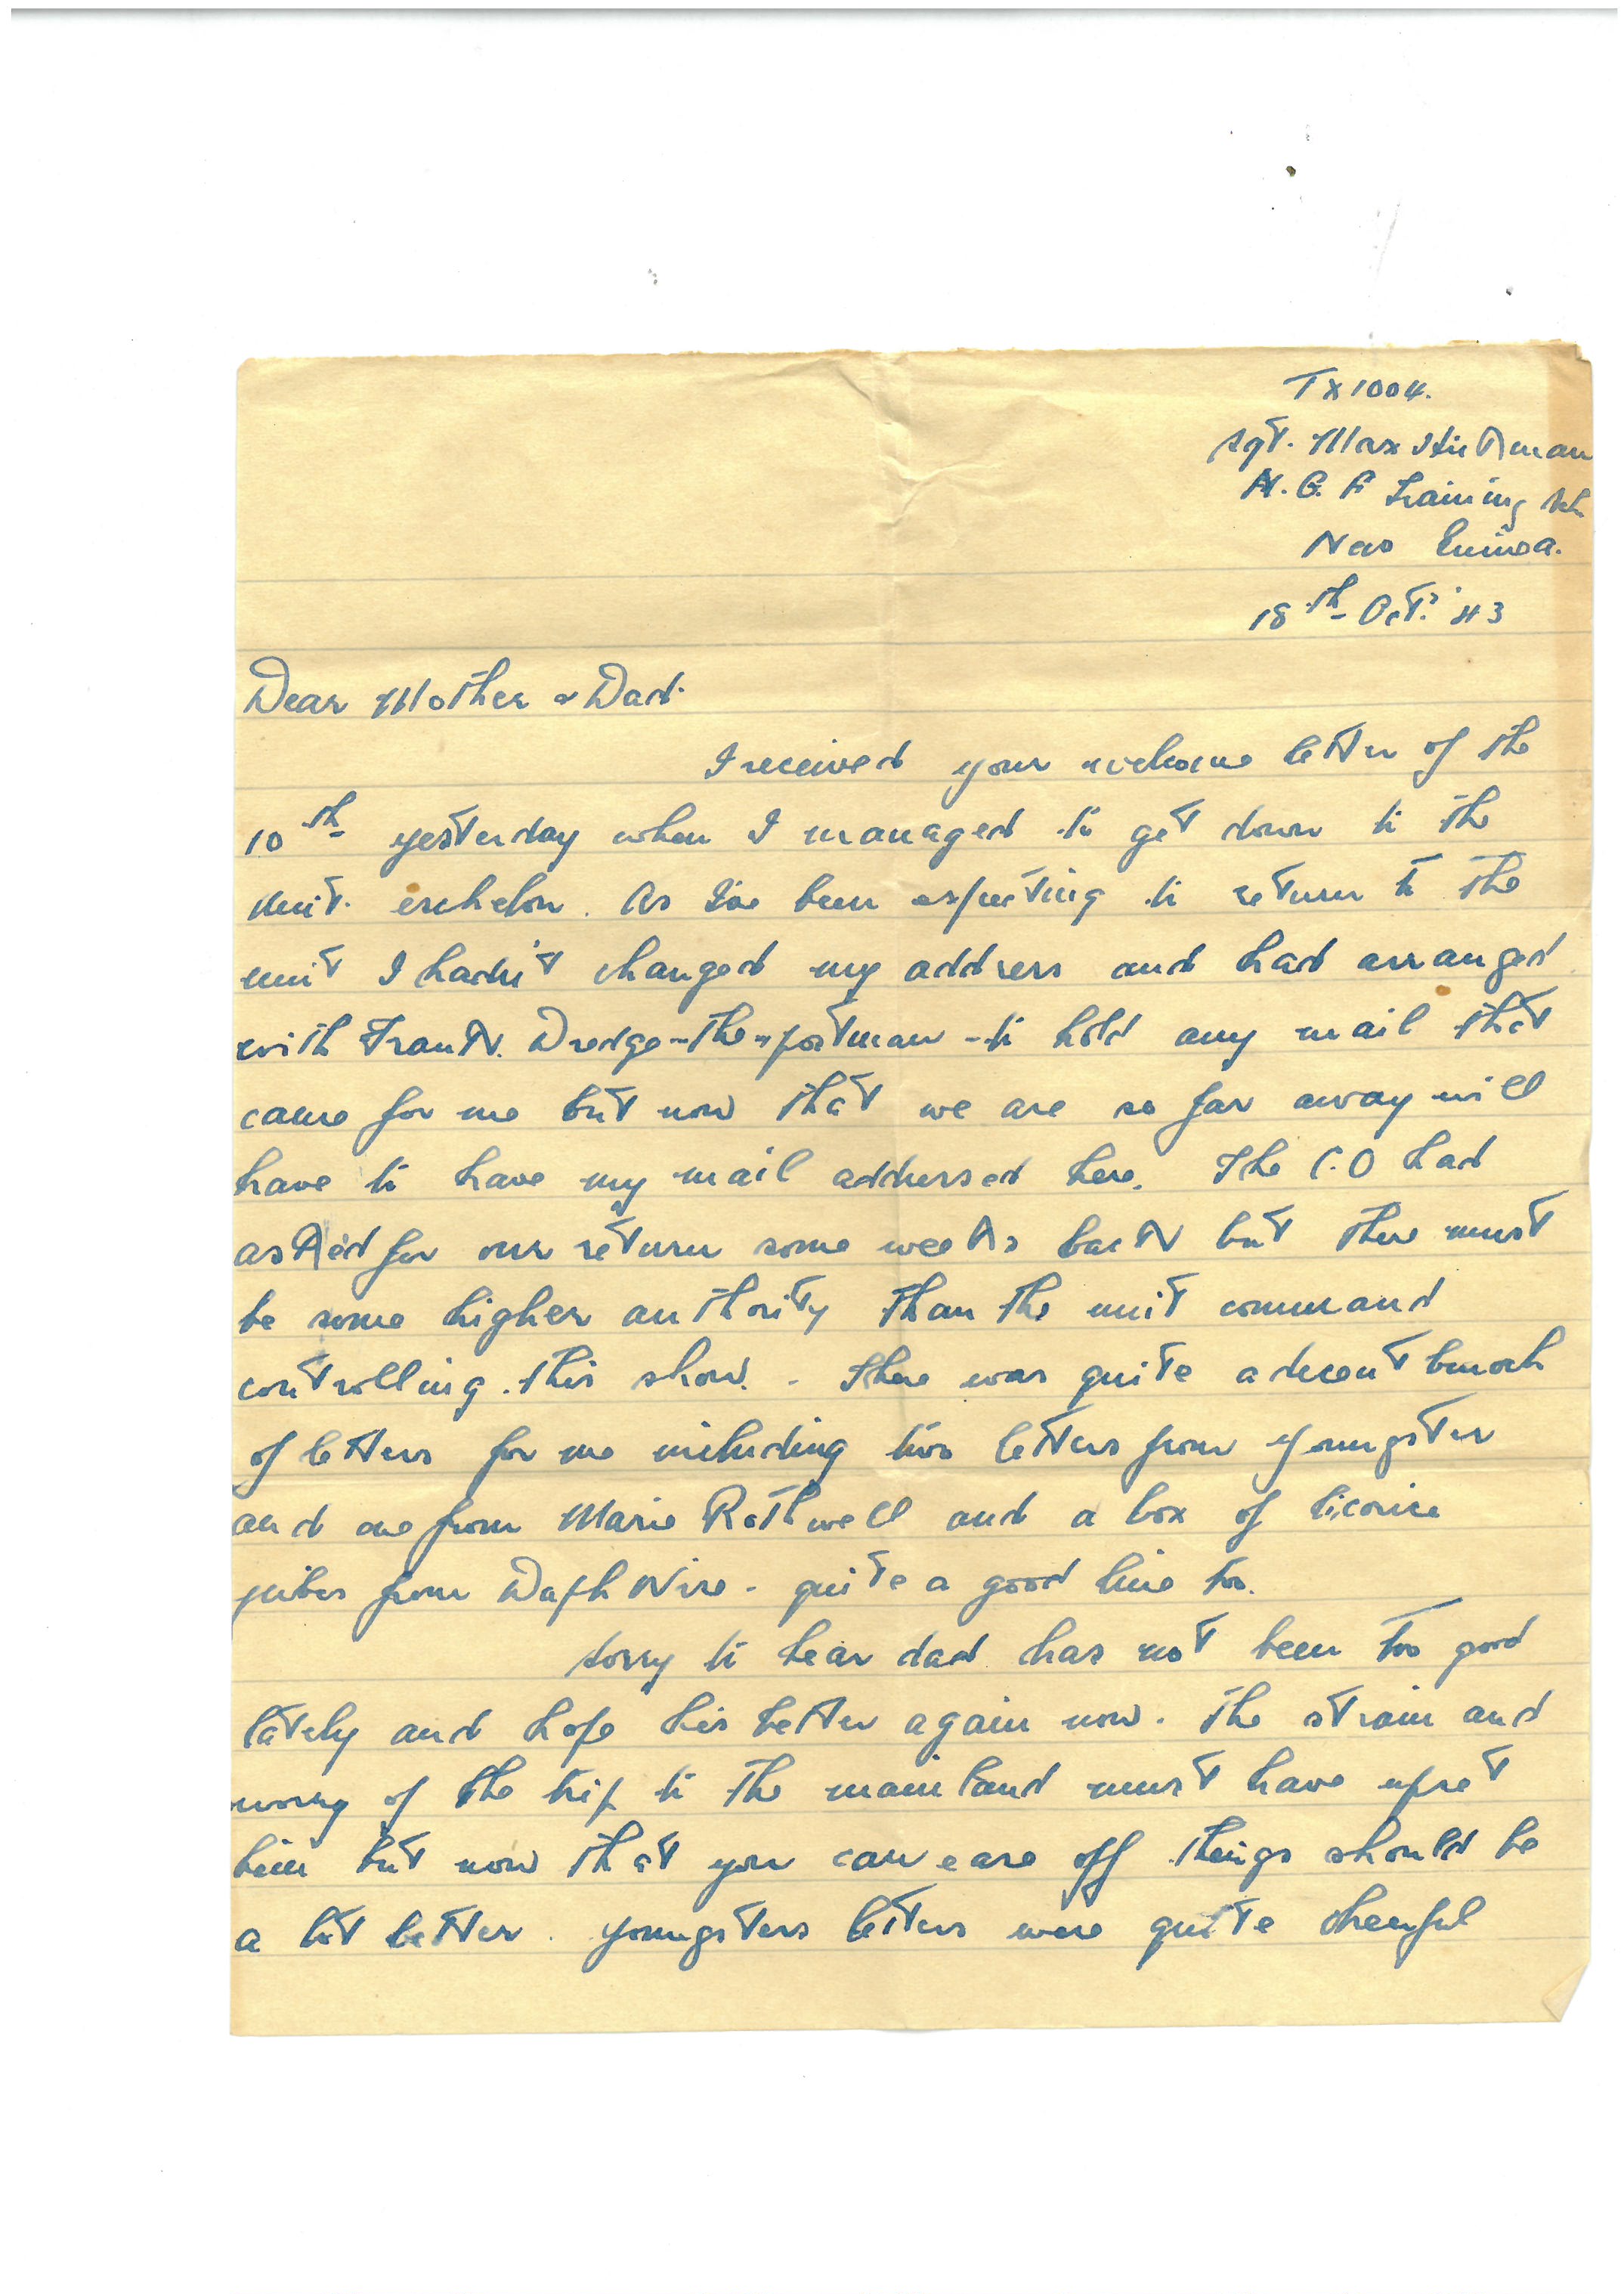 TX1004.
Sgt. Max Hickman
N.G.F Training Sch
New Guinea.
18th Oct. '43
Dear Mother & Dad.
I received your welcome letter of the
10th yesterday when I managed to get down to the
unit echelon. As I've been expecting to return to the
unit I hadn't changed my address and had arranged
with Frank Dredge - the postman - to hold any mail that
came for me but now that we are so far away will
have to have my mail addressed here. The C.O had
asked for our return some weeks back but there must
be some higher authority than the unit command
controlling this show. - There was quite a decent bunch
of letters for me including two letters from youngster
and one from Marie Rothwell and a box of licorice
jubes from Daph - quite a good line too.
Sorry to hear dad has not been too good
lately and hope his better again now. The strain and
worry of the trip to the mainland must have upset
him but now that you can ease off things should be
a lot better. Youngsters letters were quite cheerful